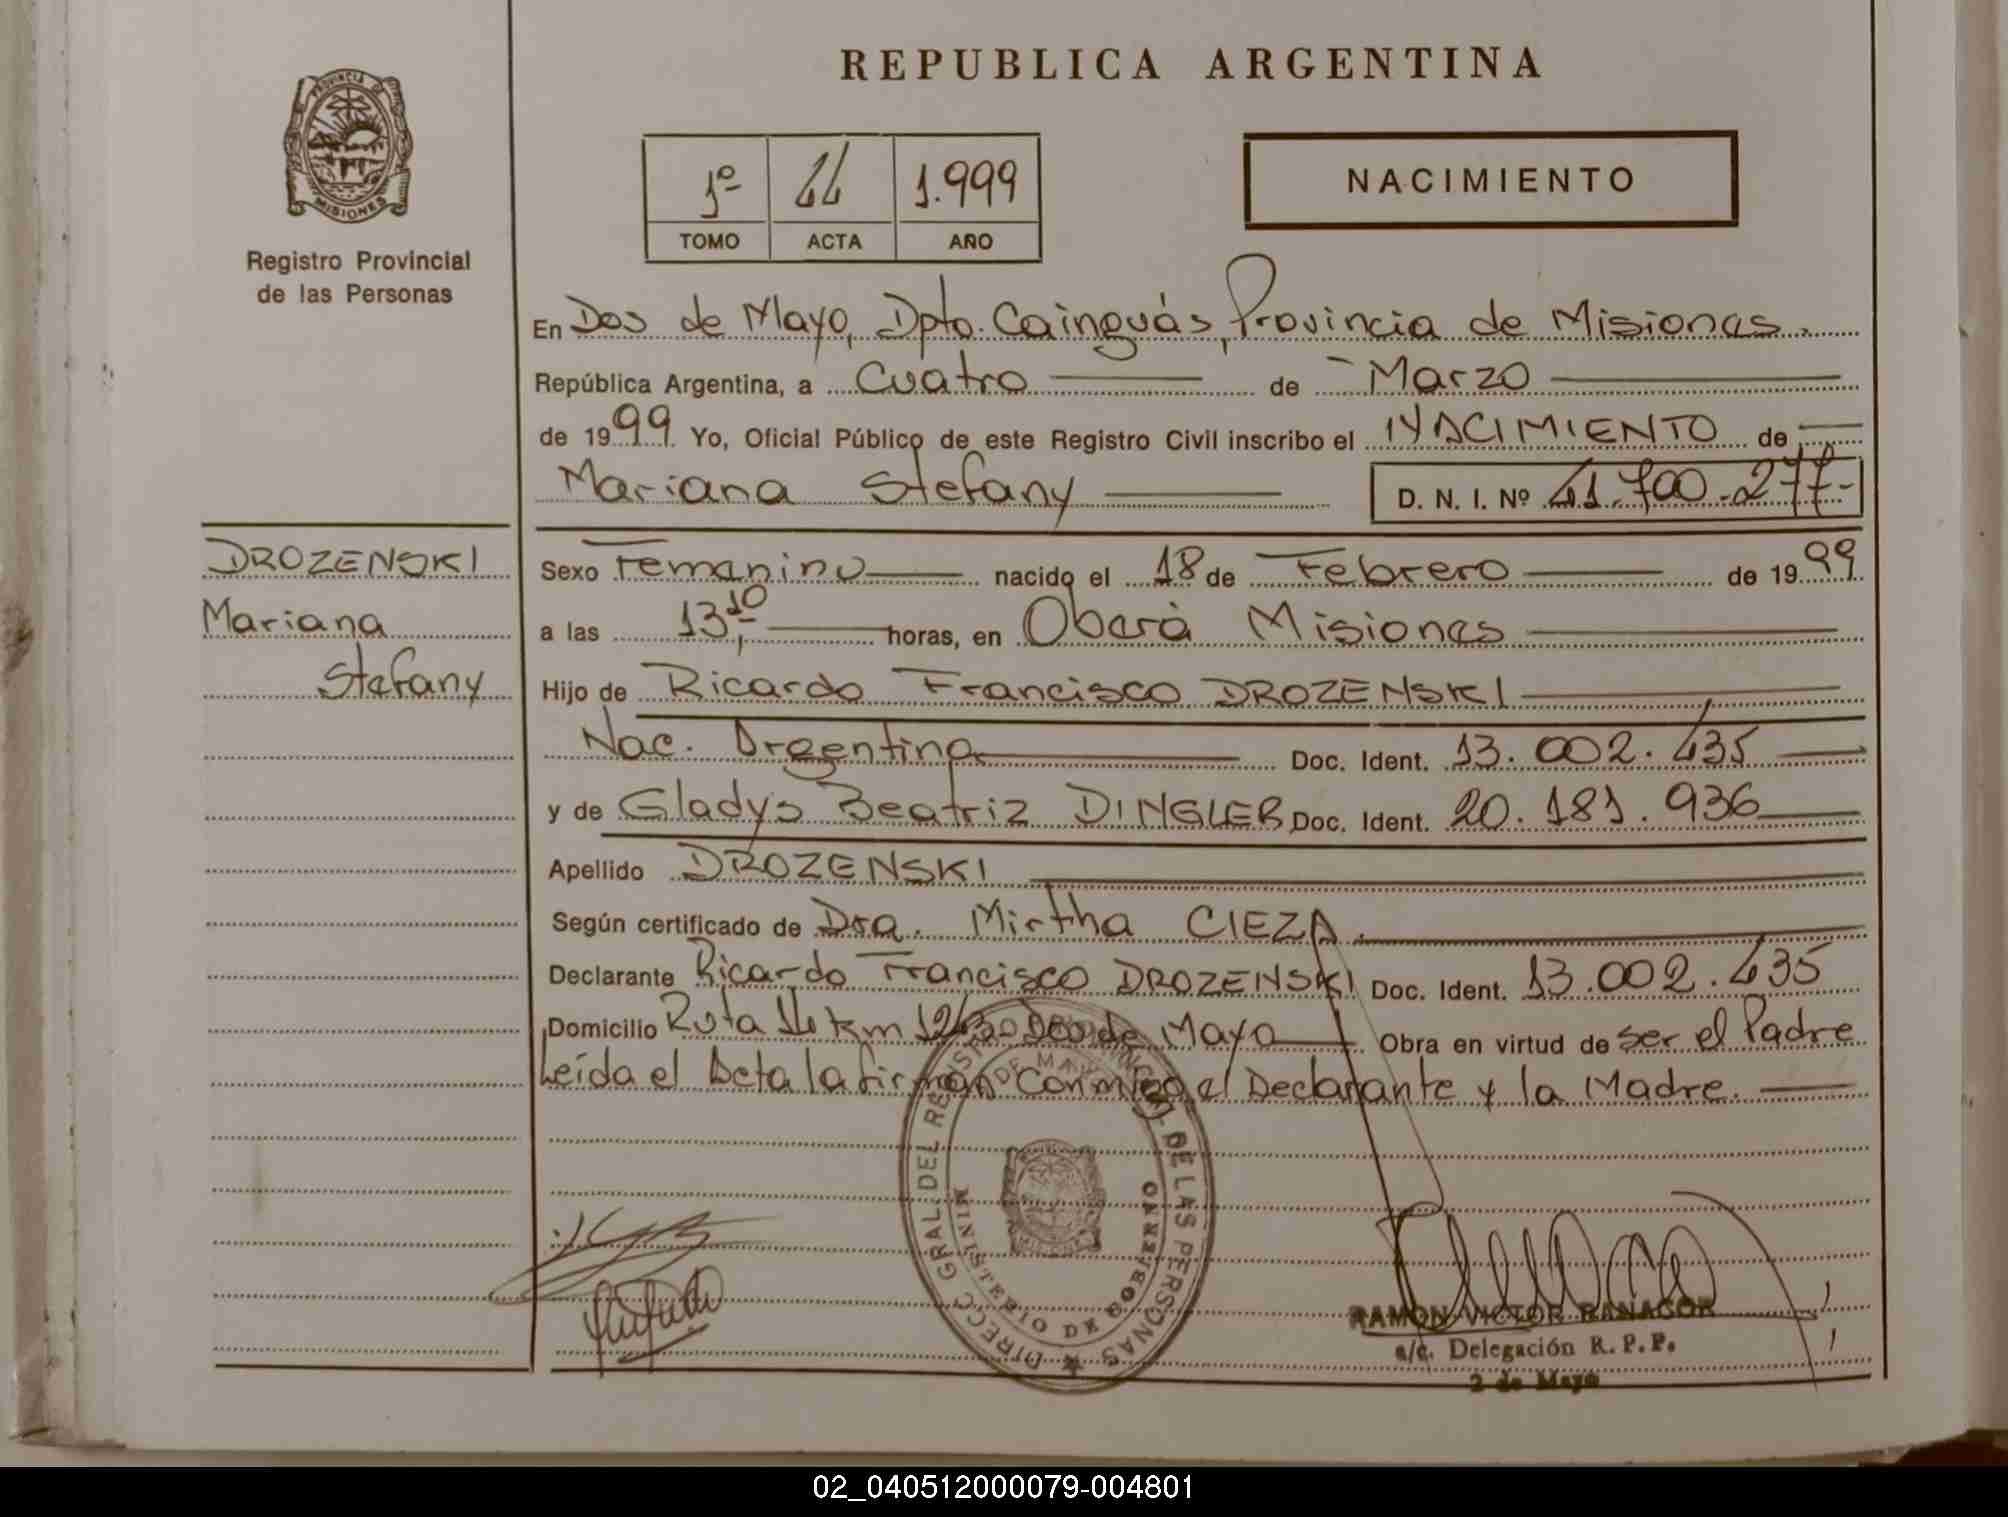 REPUBLICA ARGENTINA
PROVINCIA DE
MISIONES
Registro Provincial
de las Personas
1º 44 1.999
TOMO ACTA AÑO
NACIMIENTO
En Dos de Mayo, Dpto. Cainguás, Provincia de Misiones.
República Argentina, a Cuatro de Marzo
de 1999 Yo, Oficial Público de este Registro Civil inscribo el NACIMIENTO de
Mariana Stefany D. N. I. Nº 41.700.277-
DROZENSKI
Mariana
Stefany
Sexo Femenino nacido el 18 de Febrero de 1999
a las 13,10 horas, en Oberá Misiones
Hijo de Ricardo Francisco DROZENSKI
Nac. Argentina Doc. Ident. 13.002.435
y de Gladys Beatriz DINGLER Doc. Ident. 20.181.936
Apellido DROZENSKI
Según certificado de Dra. Mirtha CIEZA.
Declarante Ricardo Francisco DROZENSKI Doc. Ident. 13.002.435
Domicilio Ruta 14 km Dos de Mayo Obra en virtud de ser el Padre
Leída el Acta la firman Conmigo el Declarante y la Madre.
DIRECC GRAL DEL REGISTRO PROVINCIAL DE LAS PERSONAS
MINISTERIO DE GOBIERNO
DE MAYO
RAMON VICTOR RANACOR
a/c. Delegación R. P. P.
2 de Mayo
02_040512000079-004801